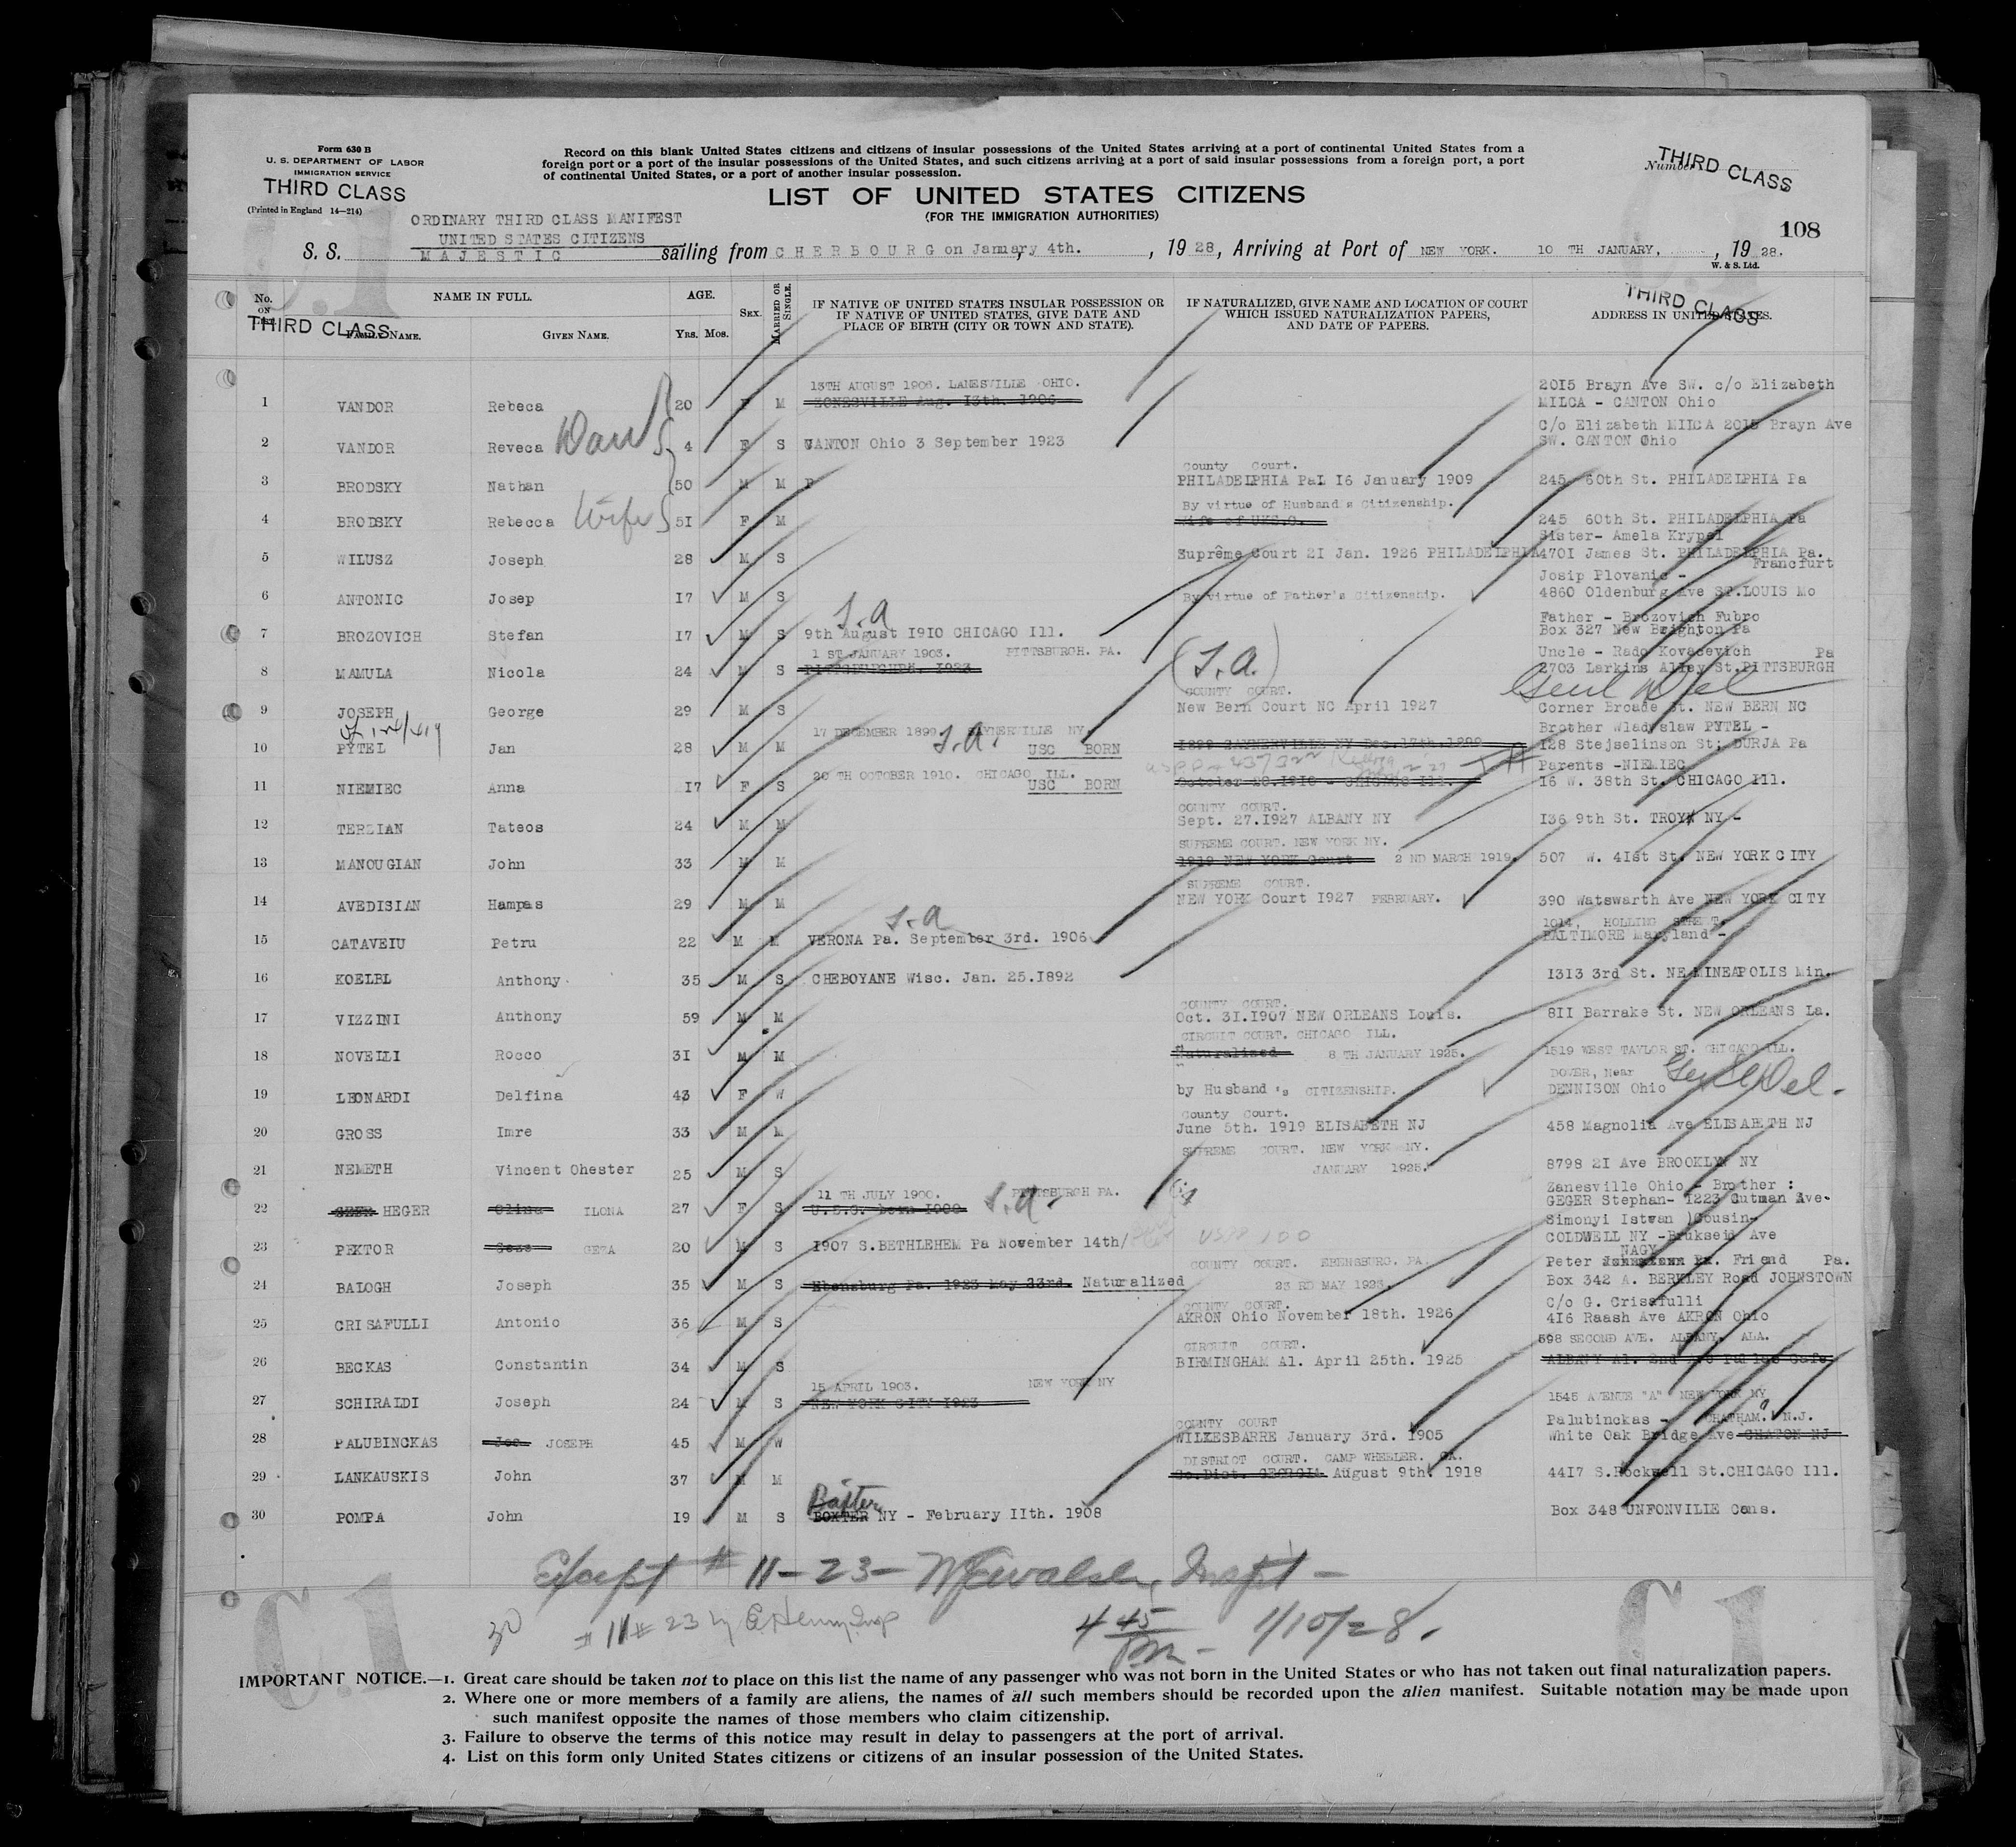 Form 630 B
U. S. DEPARTMENT OF LABOR
IMMIGRATION SERVICE
THIRD CLASS
(Printed in England 14—214)
Record on this blank United States citizens and citizens of insular possessions of the United States arriving at a port of continental United States from a
foreign port or a port of the insular possessions of the United States, and such citizens arriving at a port of said insular possessions from a foreign port, a port
of continental United States, or a port of another insular possession.
Number
THIRD CLASS
LIST OF UNITED STATES CITIZENS
(FOR THE IMMIGRATION AUTHORITIES)
ORDINARY THIRD CLASS MANIFEST
UNITED STATES CITIZENS
108
S. S. MAJESTIC sailing from CHERBOURG on January 4th. , 1928, Arriving at Port of NEW YORK. 10 TH JANUARY, , 1928.
W. & S. Ltd.
No. ON LIST. NAME IN FULL. AGE. SEX. MARRIED OR SINGLE. IF NATIVE OF UNITED STATES INSULAR POSSESSION OR IF NATIVE OF UNITED STATES, GIVE DATE AND PLACE OF BIRTH (CITY OR TOWN AND STATE). IF NATURALIZED, GIVE NAME AND LOCATION OF COURT WHICH ISSUED NATURALIZATION PAPERS, AND DATE OF PAPERS. ADDRESS IN UNITED STATES.
THIRD CLASS FAMILY NAME. GIVEN NAME. Yrs. Mos. THIRD CLASS
13TH AUGUST 1906. LANESVILLE OHIO. 2015 Brayn Ave SW. c/o Elizabeth
1 VANDOR Rebeca 20 F M ZONESVILLE Aug. 13th. 1906 MILCA - CANTON Ohio
C/o Elizabeth MILCA 2015 Brayn Ave
2 VANDOR Reveca 4 F S CANTON Ohio 3 September 1923 SW. CANTON Ohio
County Court.
3 BRODSKY Nathan 50 M M PHILADELPHIA Pa 16 January 1909 245 60th St. PHILADELPHIA Pa
By virtue of Husband's Citizenship.
4 BRODSKY Rebecca Wife 51 F M 245 60th St. PHILADELPHIA Pa
Sister- Amela Krypel
5 WILUSZ Joseph 28 M S Suprême Court 21 Jan. 1926 PHILADELPHIA 4701 James St. PHILADELPHIA Pa.
Josip Plovanic - Francfurt
6 ANTONIC Josep 17 M S By virtue of Father's Citizenship. 4860 Oldenburg Ave ST.LOUIS Mo
Father - Brozovich Fubro
7 BROZOVICH Stefan 17 M S 9th August 1910 CHICAGO Ill. Box 327 New Brighton Pa
1 ST JANUARY 1903. PITTSBURGH. PA. Uncle - Rado Kovacevich Pa
8 MAMULA Nicola 24 M S 2703 Larkins Alley St.PITTSBURGH
COUNTY COURT.
9 JOSEPH George 29 M S New Bern Court NC April 1927 Corner Broade St. NEW BERN NC
17 DECEMBER 1899 NY Brother Wladyslaw PYTEL -
10 PYTEL Jan 28 M M USC BORN 128 Stejselinson St; DURJA Pa
20 TH OCTOBER 1910. CHICAGO ILL. Parents -NIEMIEC
11 NIEMIEC Anna 17 F S USC BORN October 20.1910 - CHICAGO Ill. 16 W. 38th St. CHICAGO Ill.
COUNTY COURT.
12 TERZIAN Tateos 24 M M Sept. 27.1927 ALBANY NY 136 9th St. TROY NY -
SUPREME COURT. NEW YORK NY.
13 MANOUGIAN John 33 M M 1919 NEW YORK Court 2 ND MARCH 1919. 507 W. 41st St. NEW YORK CITY
SUPREME COURT.
14 AVEDISIAN Hampas 29 M M NEW YORK Court 1927 FEBRUARY. 390 Watswarth Ave NEW YORK CITY
1014, HOLLING STREET.
15 CATAVEIU Petru 22 M M VERONA Pa. September 3rd. 1906 BALTIMORE Maryland -
16 KOELBL Anthony 35 M S CHEBOYANE Wisc. Jan. 25.1892 1313 3rd St. NE MINEAPOLIS Min.
COUNTY COURT.
17 VIZZINI Anthony 59 M M Oct. 31.1907 NEW ORLEANS Louis. 811 Barrake St. NEW ORLEANS La.
CIRCUIT COURT. CHICAGO ILL.
18 NOVELLI Rocco 31 M M Naturalized 8 TH JANUARY 1925. 1519 WEST TAYLOR ST. CHICAGO ILL.
DOVER, Near
19 LEONARDI Delfina 43 F W by Husband's CITIZENSHIP. DENNISON Ohio
County Court.
20 GROSS Imre 33 M M June 5th. 1919 ELISABETH NJ 458 Magnolia Ave ELISABETH NJ
SUPREME COURT. NEW YORK NY.
21 NEMETH Vincent Ohester 25 M S JANUARY 1925. 8798 21 Ave BROOKLYN NY
11 TH JULY 1900. PITTSBURGH PA. Zanesville Ohio - Brother :
22 HEGER ILONA 27 F S U.S.C. born 1900 GEGER Stephan- 1223 Cutman Ave-
Simonyi Istwan )Cousin-
23 PEKTOR GEZA 20 M S 1907 S.BETHLEHEM Pa November 14th/ COLDWELL NY -Brukseid Ave
COUNTY COURT. EBENSBURG. PA. Peter NAGY Friend Pa.
24 BALOGH Joseph 35 M S Ebensburg Pa. 1923 May 23rd. Naturalized 23 RD MAY 1923. Box 342 A. BERKLEY Road JOHNSTOWN
COUNTY COURT. C/o G. Crisafulli
25 CRISAFULLI Antonio 36 M S AKRON Ohio November 18th. 1926 416 Raash Ave AKRON Ohio
CIRCUIT COURT. 598 SECOND AVE. ALBANY, ALA.
26 BECKAS Constantin 34 M S BIRMINGHAM Al. April 25th. 1925
15 APRIL 1903. NEW YORK NY
27 SCHIRALDI Joseph 24 M S NEW YORK CITY 1923 1545 AVENUE "A" NEW YORK NY
COUNTY COURT Palubinckas - CHATHAM. N.J.
28 PALUBINCKAS Jos. JOSEPH 45 M W WILKESBARRE January 3rd. 1905 White Oak Bridge Ave CHATON NJ
DISTRICT COURT. CAMP WHEELER. GA.
29 LANKAUSKIS John 37 M M So.Dist. GEORGIA August 9th. 1918 4417 S.Rockwell St.CHICAGO Ill.
Baxter
30 POMPA John 19 M S BOXTER NY - February 11th. 1908 Box 348 UNFONVILIE Cons.
Except # 11 - 23 -
30 # 11 # 23
4 45 pm - 1/10/28.
C.1
IMPORTANT NOTICE.—1. Great care should be taken not to place on this list the name of any passenger who was not born in the United States or who has not taken out final naturalization papers.
2. Where one or more members of a family are aliens, the names of all such members should be recorded upon the alien manifest. Suitable notation may be made upon
such manifest opposite the names of those members who claim citizenship.
3. Failure to observe the terms of this notice may result in delay to passengers at the port of arrival.
4. List on this form only United States citizens or citizens of an insular possession of the United States.